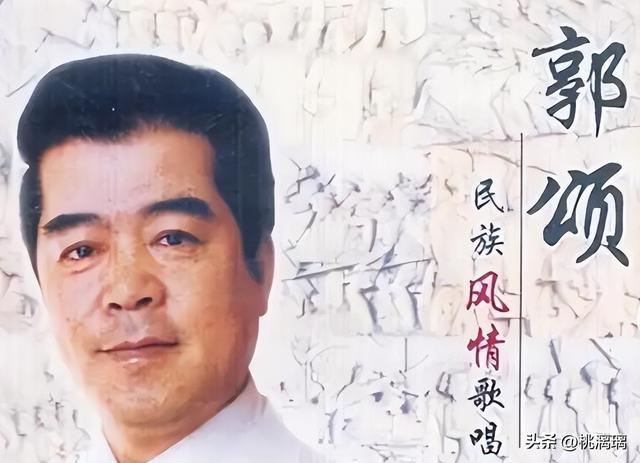 郭颂
民族风情歌唱
头条@桃漓璃